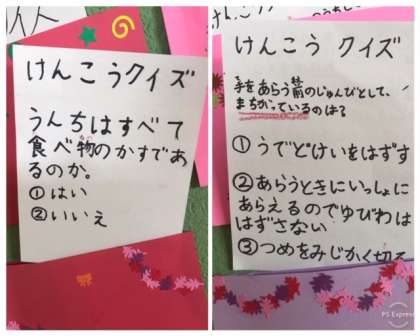 けんこうクイズ
うんちはすべて
食べ物のかすであ
るのか。
①はい
②いいえ
けんこう クイズ
手をあらう前のじゅんびとして、
まちがっているのは?
①うでどけいをはずす
②あらうときにいっしょに
あらえるのでゆびわは
はずさない
③つめをみじかく切る
PS Express